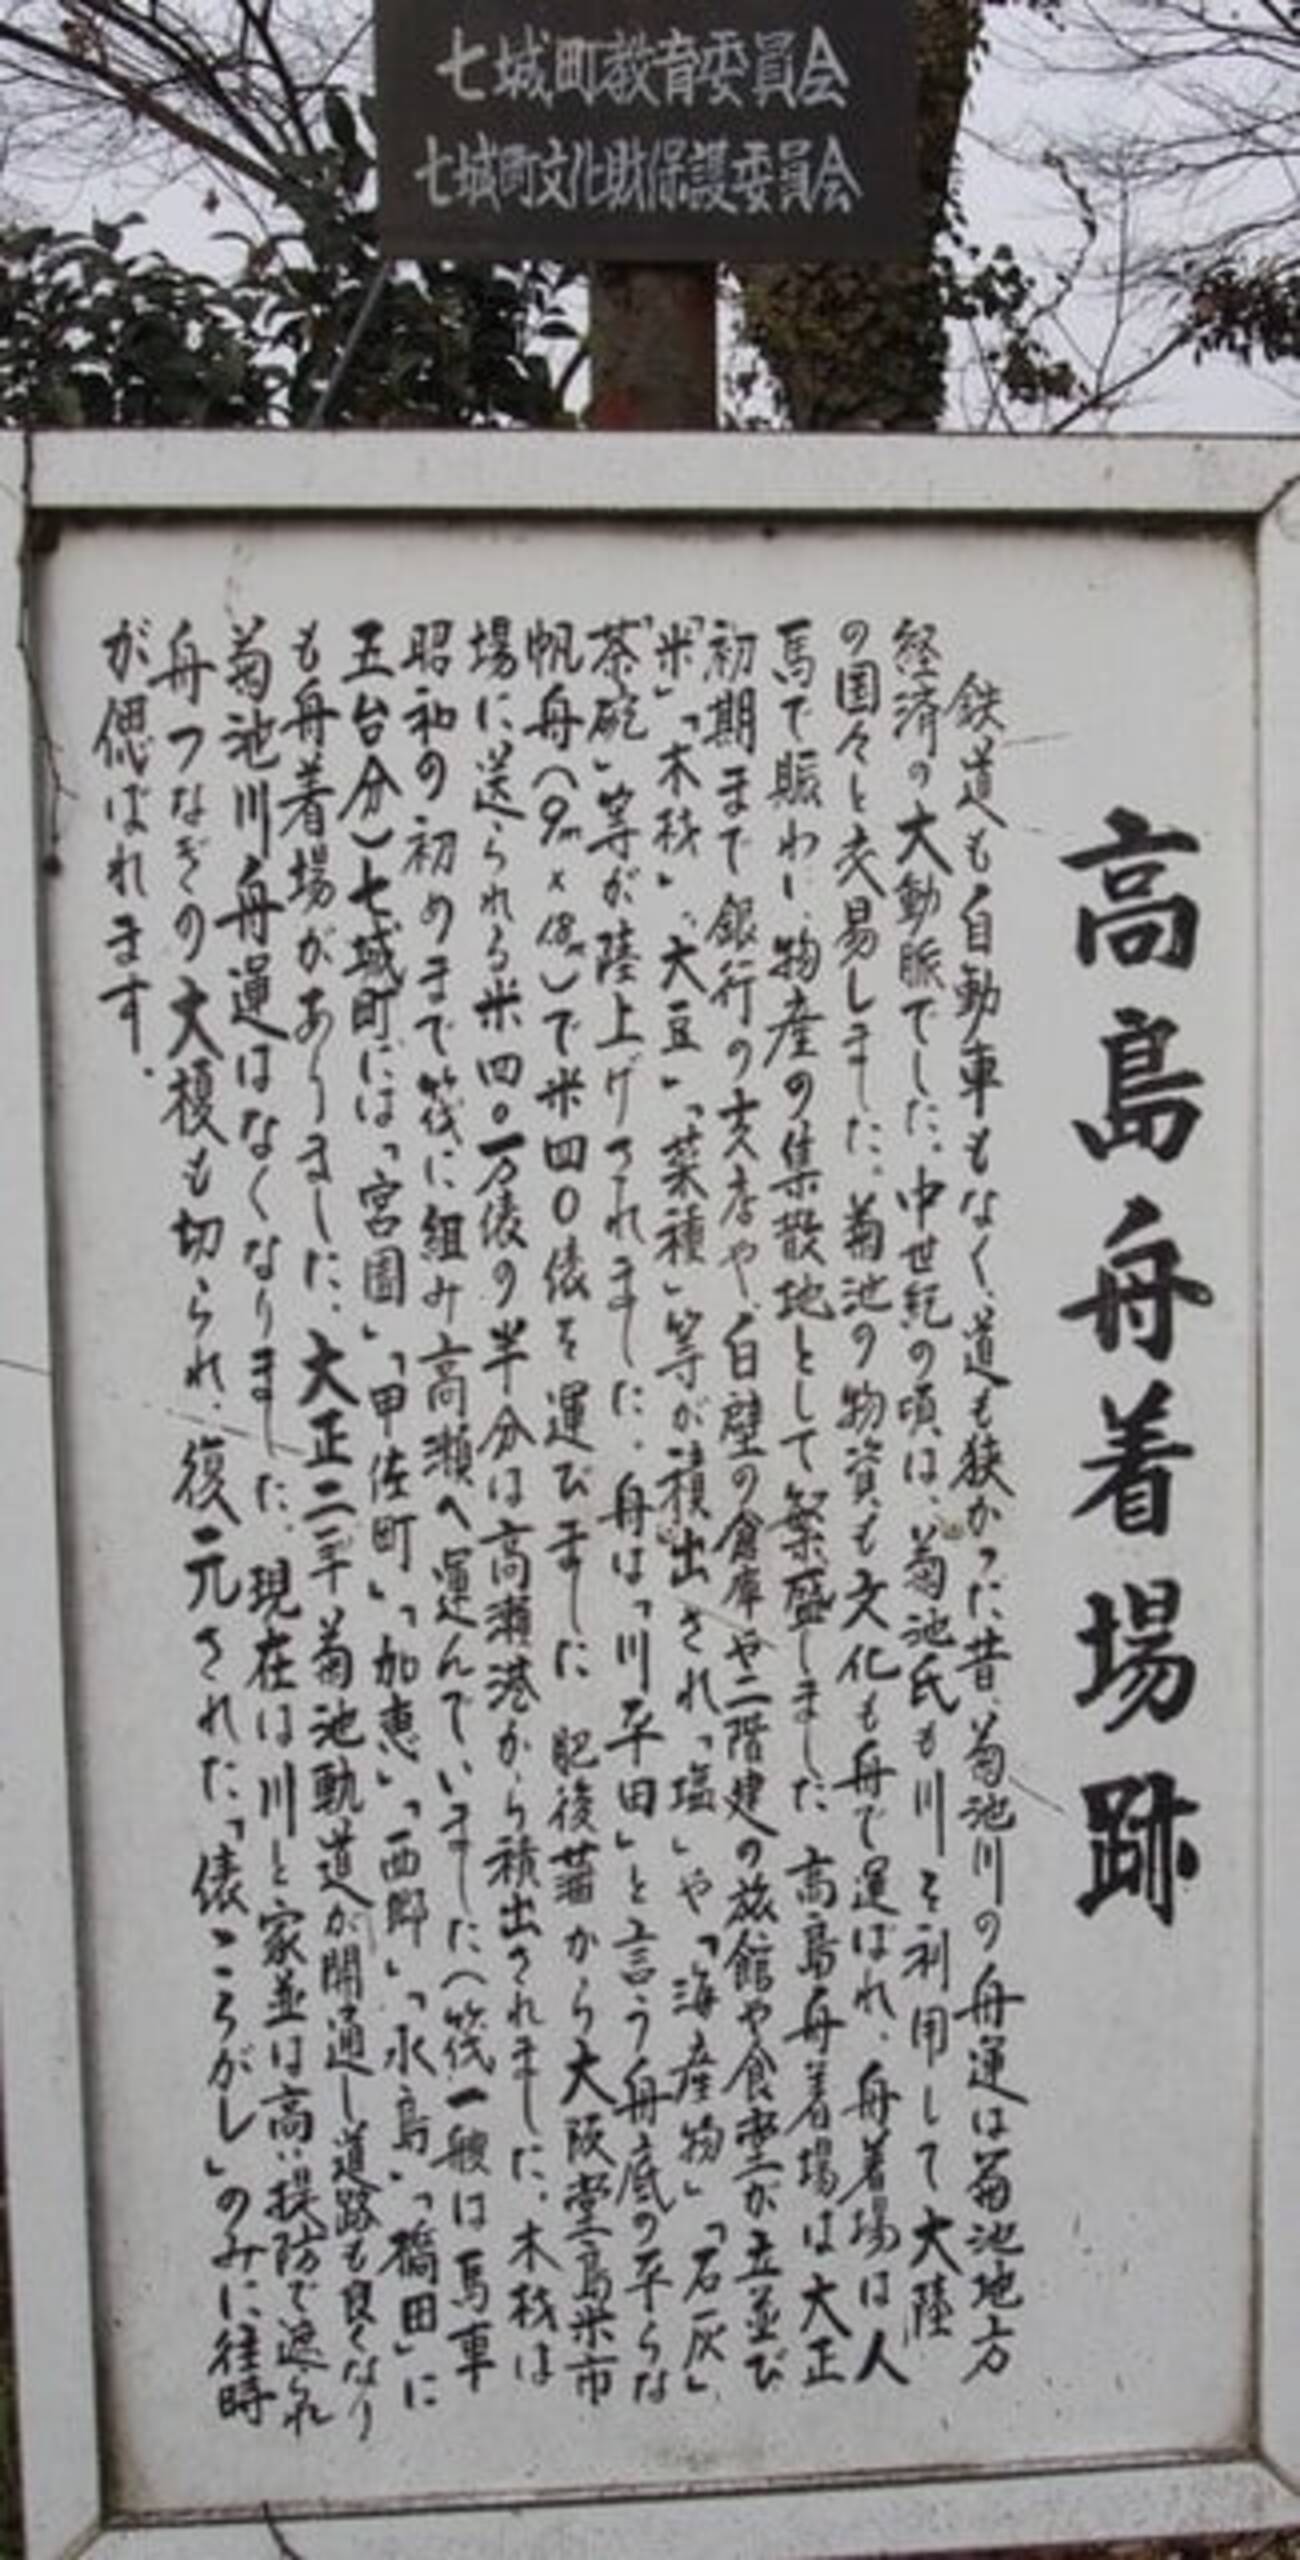 七城町教育委員会
七城町文化財保護委員会
高島舟着場跡
鉄道も自動車もなく、道も狭かった昔、菊池川の舟運は菊池地方
経済の大動脈でした。中世紀の頃は、菊池氏も川を利用して大陸
の国々と交易しました。菊池の物資も文化も舟で運ばれ、舟着場は人
馬で賑わい、物産の集散地として繁盛しました 高島舟着場は大正
初期まで銀行の支店や、白壁の倉庫や二階建の旅館や食堂が立並び
「米」「木材」、大豆」「菜種」等が積出され「塩」や「海産物」「石灰」
「茶碗」等が陸上げされました。舟は「川平田」と言う舟底の平らな
帆舟(9m×1.8m)で米四〇俵を運びました 肥後藩から大阪堂島米市
場に送られる米四〇万俵の半分は高瀬港から積出されました。木材は
昭和の初めまで筏に組み高瀬へ運んでいました(筏一艘は馬車
五台分)七城町には「宮園」「甲佐町」「加恵」「西郷」「水島」「橋田」に
も舟着場がありました。大正二年菊池軌道が開通し道路も良くなり
菊池川舟運はなくなりました。現在は川と家並は高い堤防で遮られ
舟つなぎの大榎も切られ、復元された「俵ころがし」のみに往時
が偲ばれます。